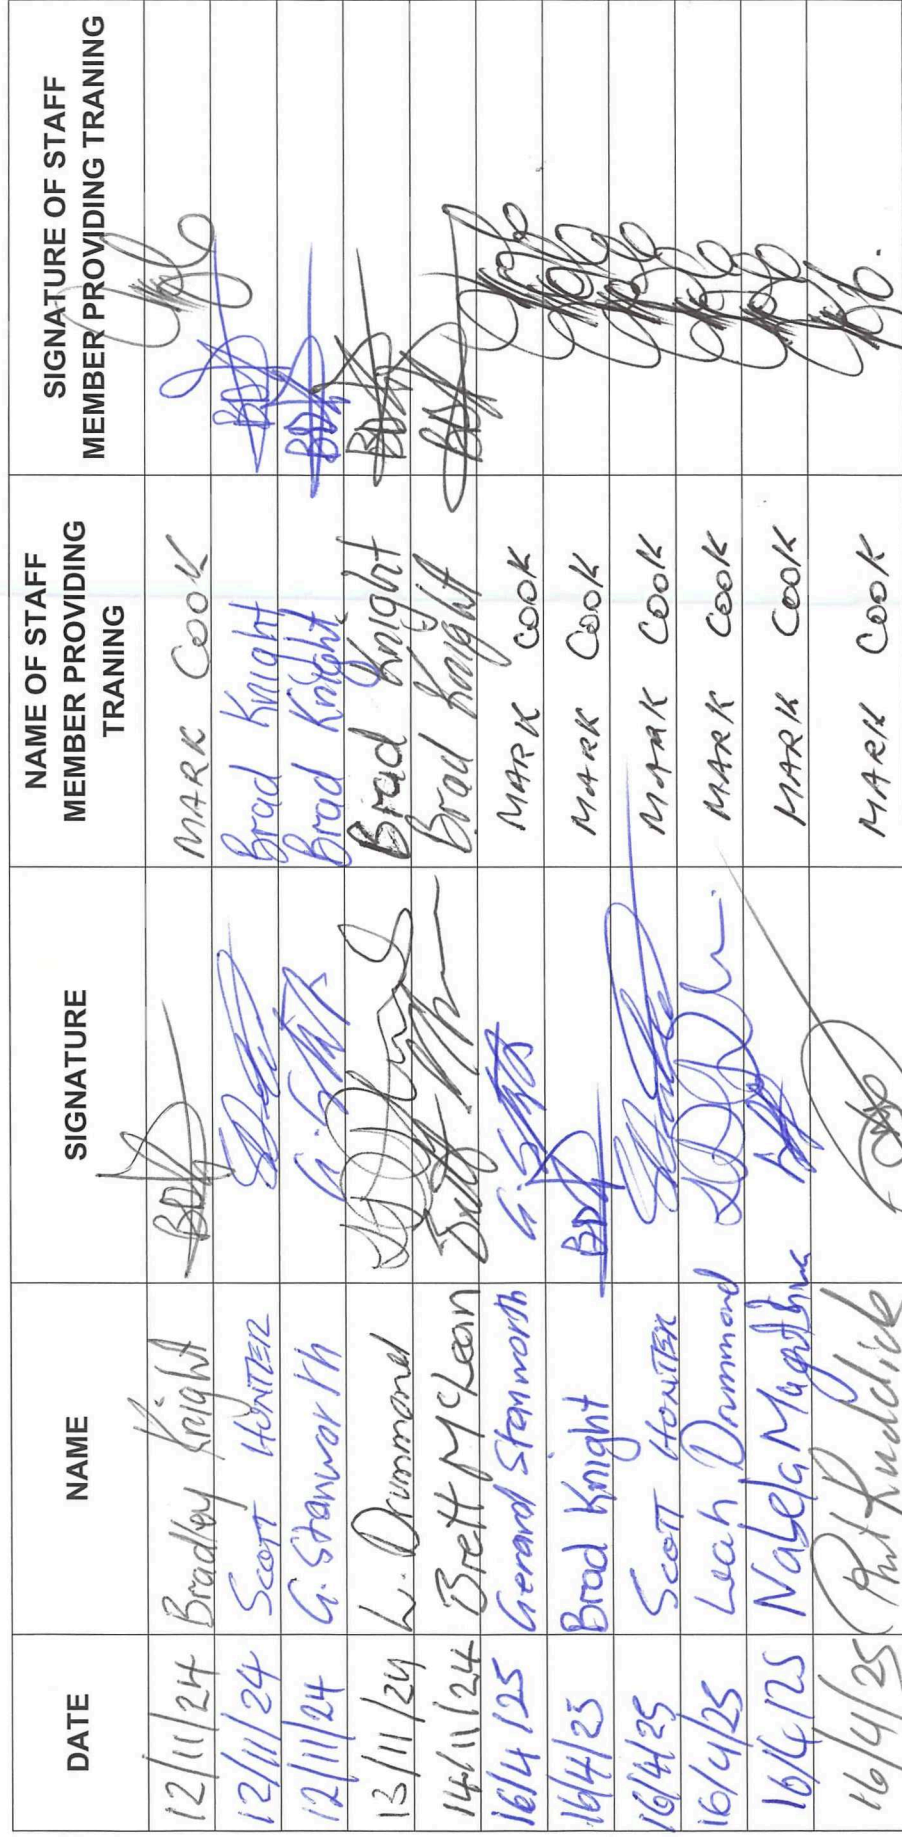 DATE NAME SIGNATURE NAME OF STAFF MEMBER PROVIDING TRANING SIGNATURE OF STAFF MEMBER PROVIDING TRANING
12/11/24 Bradley Knight MARK COOK
12/11/24 SCOTT HUNTER Brad Knight
12/11/24 G. Stanworth Brad Knight
13/11/24 L. Drummond Brad Knight
14/11/24 Brett McLean Brad Knight
16/4/25 Gerard Stanworth MARK COOK
16/4/25 Brad Knight MARK COOK
16/4/25 SCOTT HUNTER MARK COOK
16/4/25 Leah Drummond MARK COOK
16/4/25 MARK COOK
16/4/25 Phil Ruddick MARK COOK